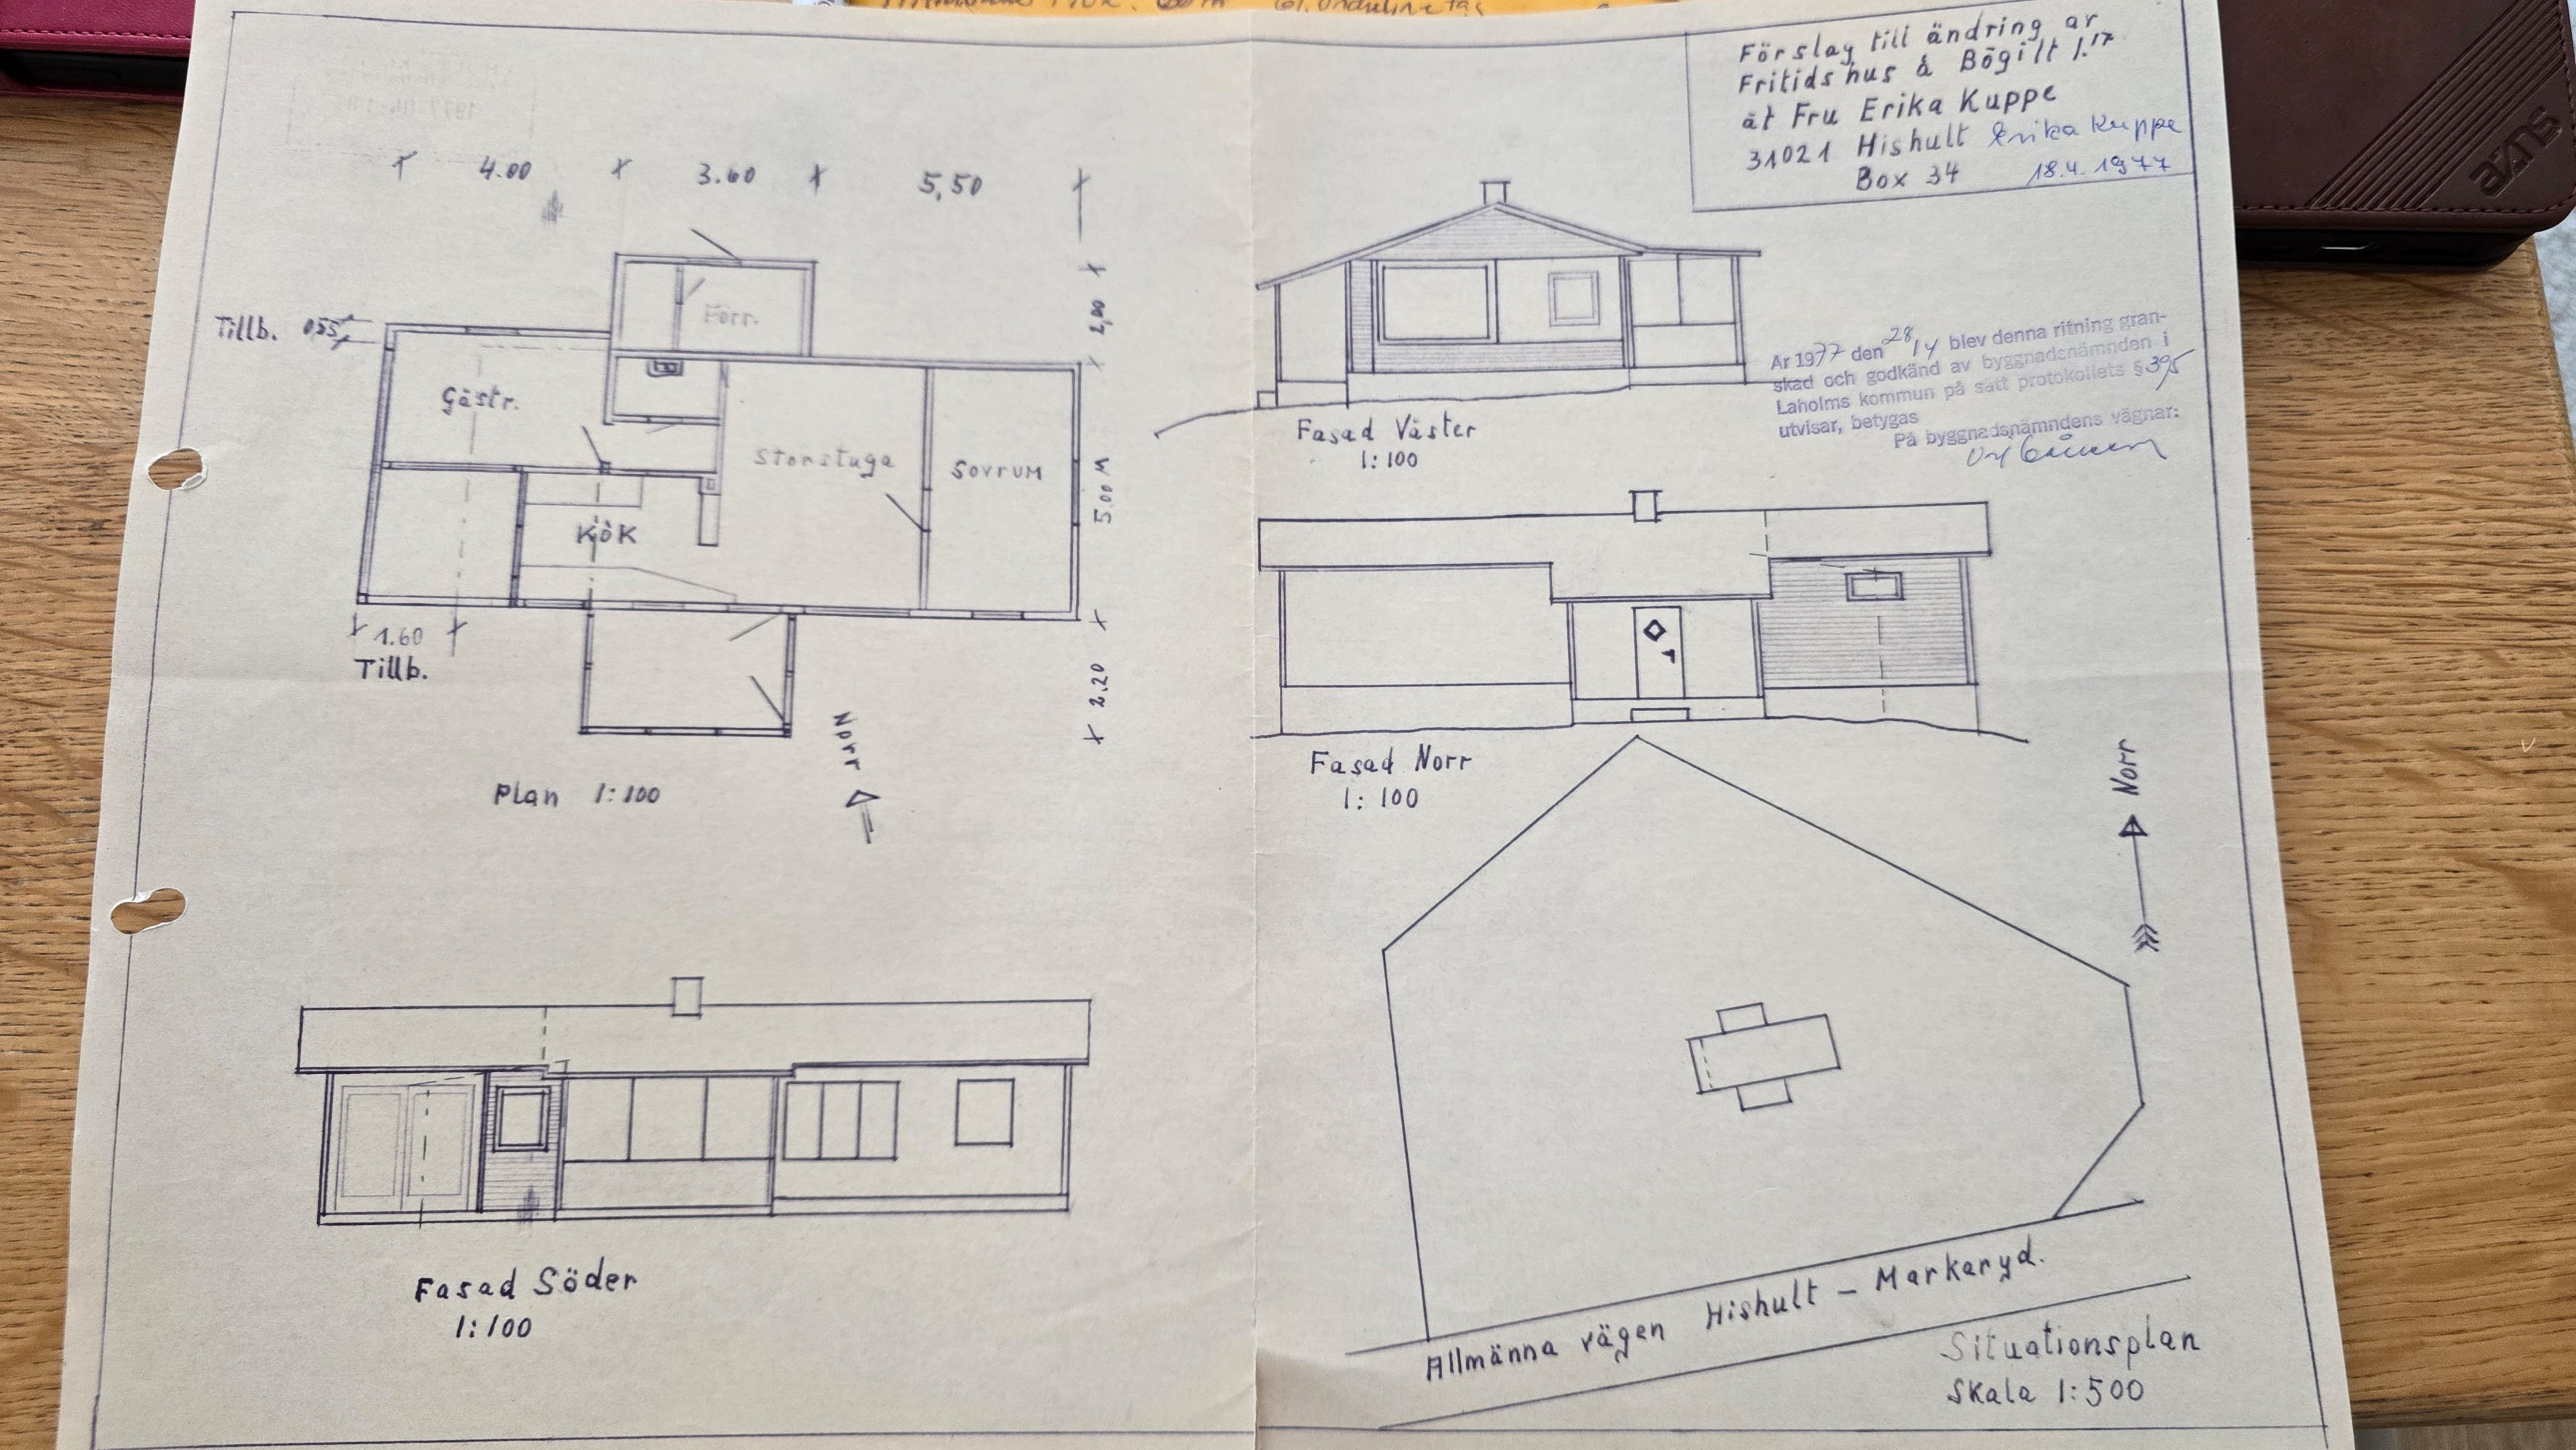 4.00 3.60 5,50
Tillb. 0,55
2,00
5.00 M
2,20
Förr.
Gästr.
Storstuga
Sovrum
Kök
1.60
Tillb.
Norr
Plan 1:100
Fasad Söder
1:100
Förslag till ändring av
Fritidshus å Bögilt 1:17
åt Fru Erika Kuppe
31021 Hishult Erika Kuppe
Box 34 18.4.1977
Fasad Väster
1:100
År 1977 den 28/4 blev denna ritning gran-
skad och godkänd av byggnadsnämnden i
Laholms kommun på sätt protokollets § 395
utvisar, betygas
På byggnadsnämndens vägnar:
Fasad Norr
1:100
Norr
Allmänna vägen Hishult – Markaryd.
Situationsplan
Skala 1:500